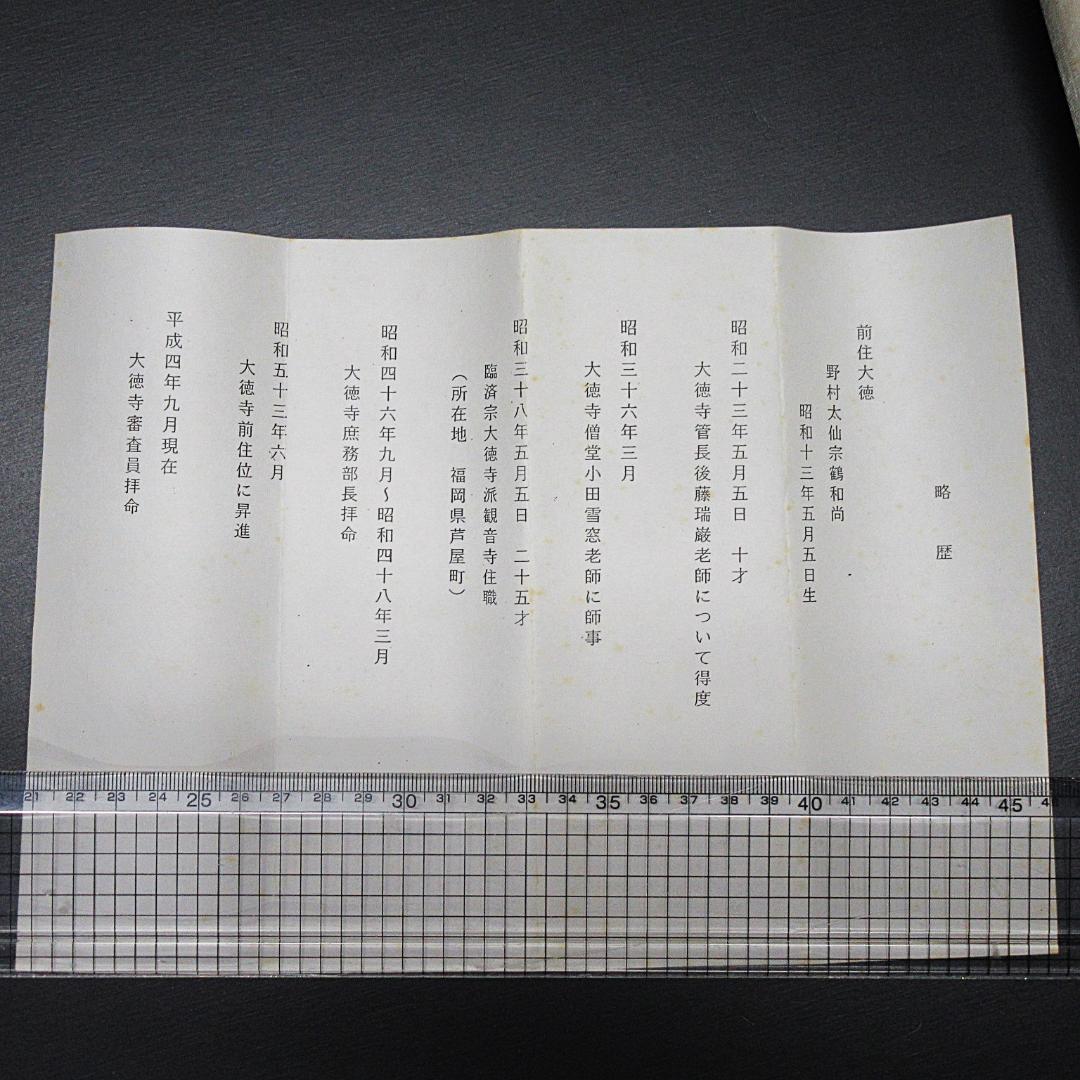 略歴
前住大徳
野村太仙宗鶴和尚
昭和十三年五月五日生
昭和二十三年五月五日 十才
大徳寺管長後藤瑞巌老師について得度
昭和三十六年三月
大徳寺僧堂小田雪窓老師に師事
昭和三十八年五月五日 二十五才
臨済宗大徳寺派観音寺住職
（所在地 福岡県芦屋町）
昭和四十六年九月〜昭和四十八年三月
大徳寺庶務部長拝命
昭和五十三年六月
大徳寺前住位に昇進
平成四年九月現在
大徳寺審査員拝命
21 22 23 24 25 26 27 28 29 30 31 32 33 34 35 36 37 38 39 40 41 42 43 44 45